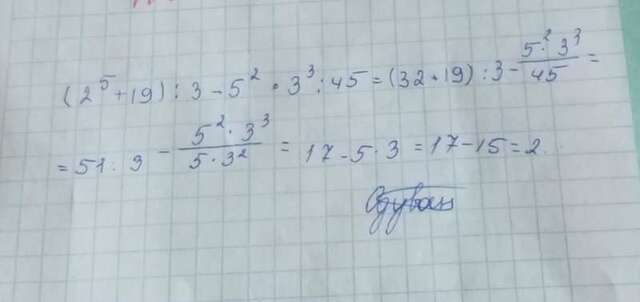 (2⁵+19):3-5²·3³:45=(32+19):3-5²·3³/45=
=51:3-5²·3³/5·3²=17-5·3=17-15=2.